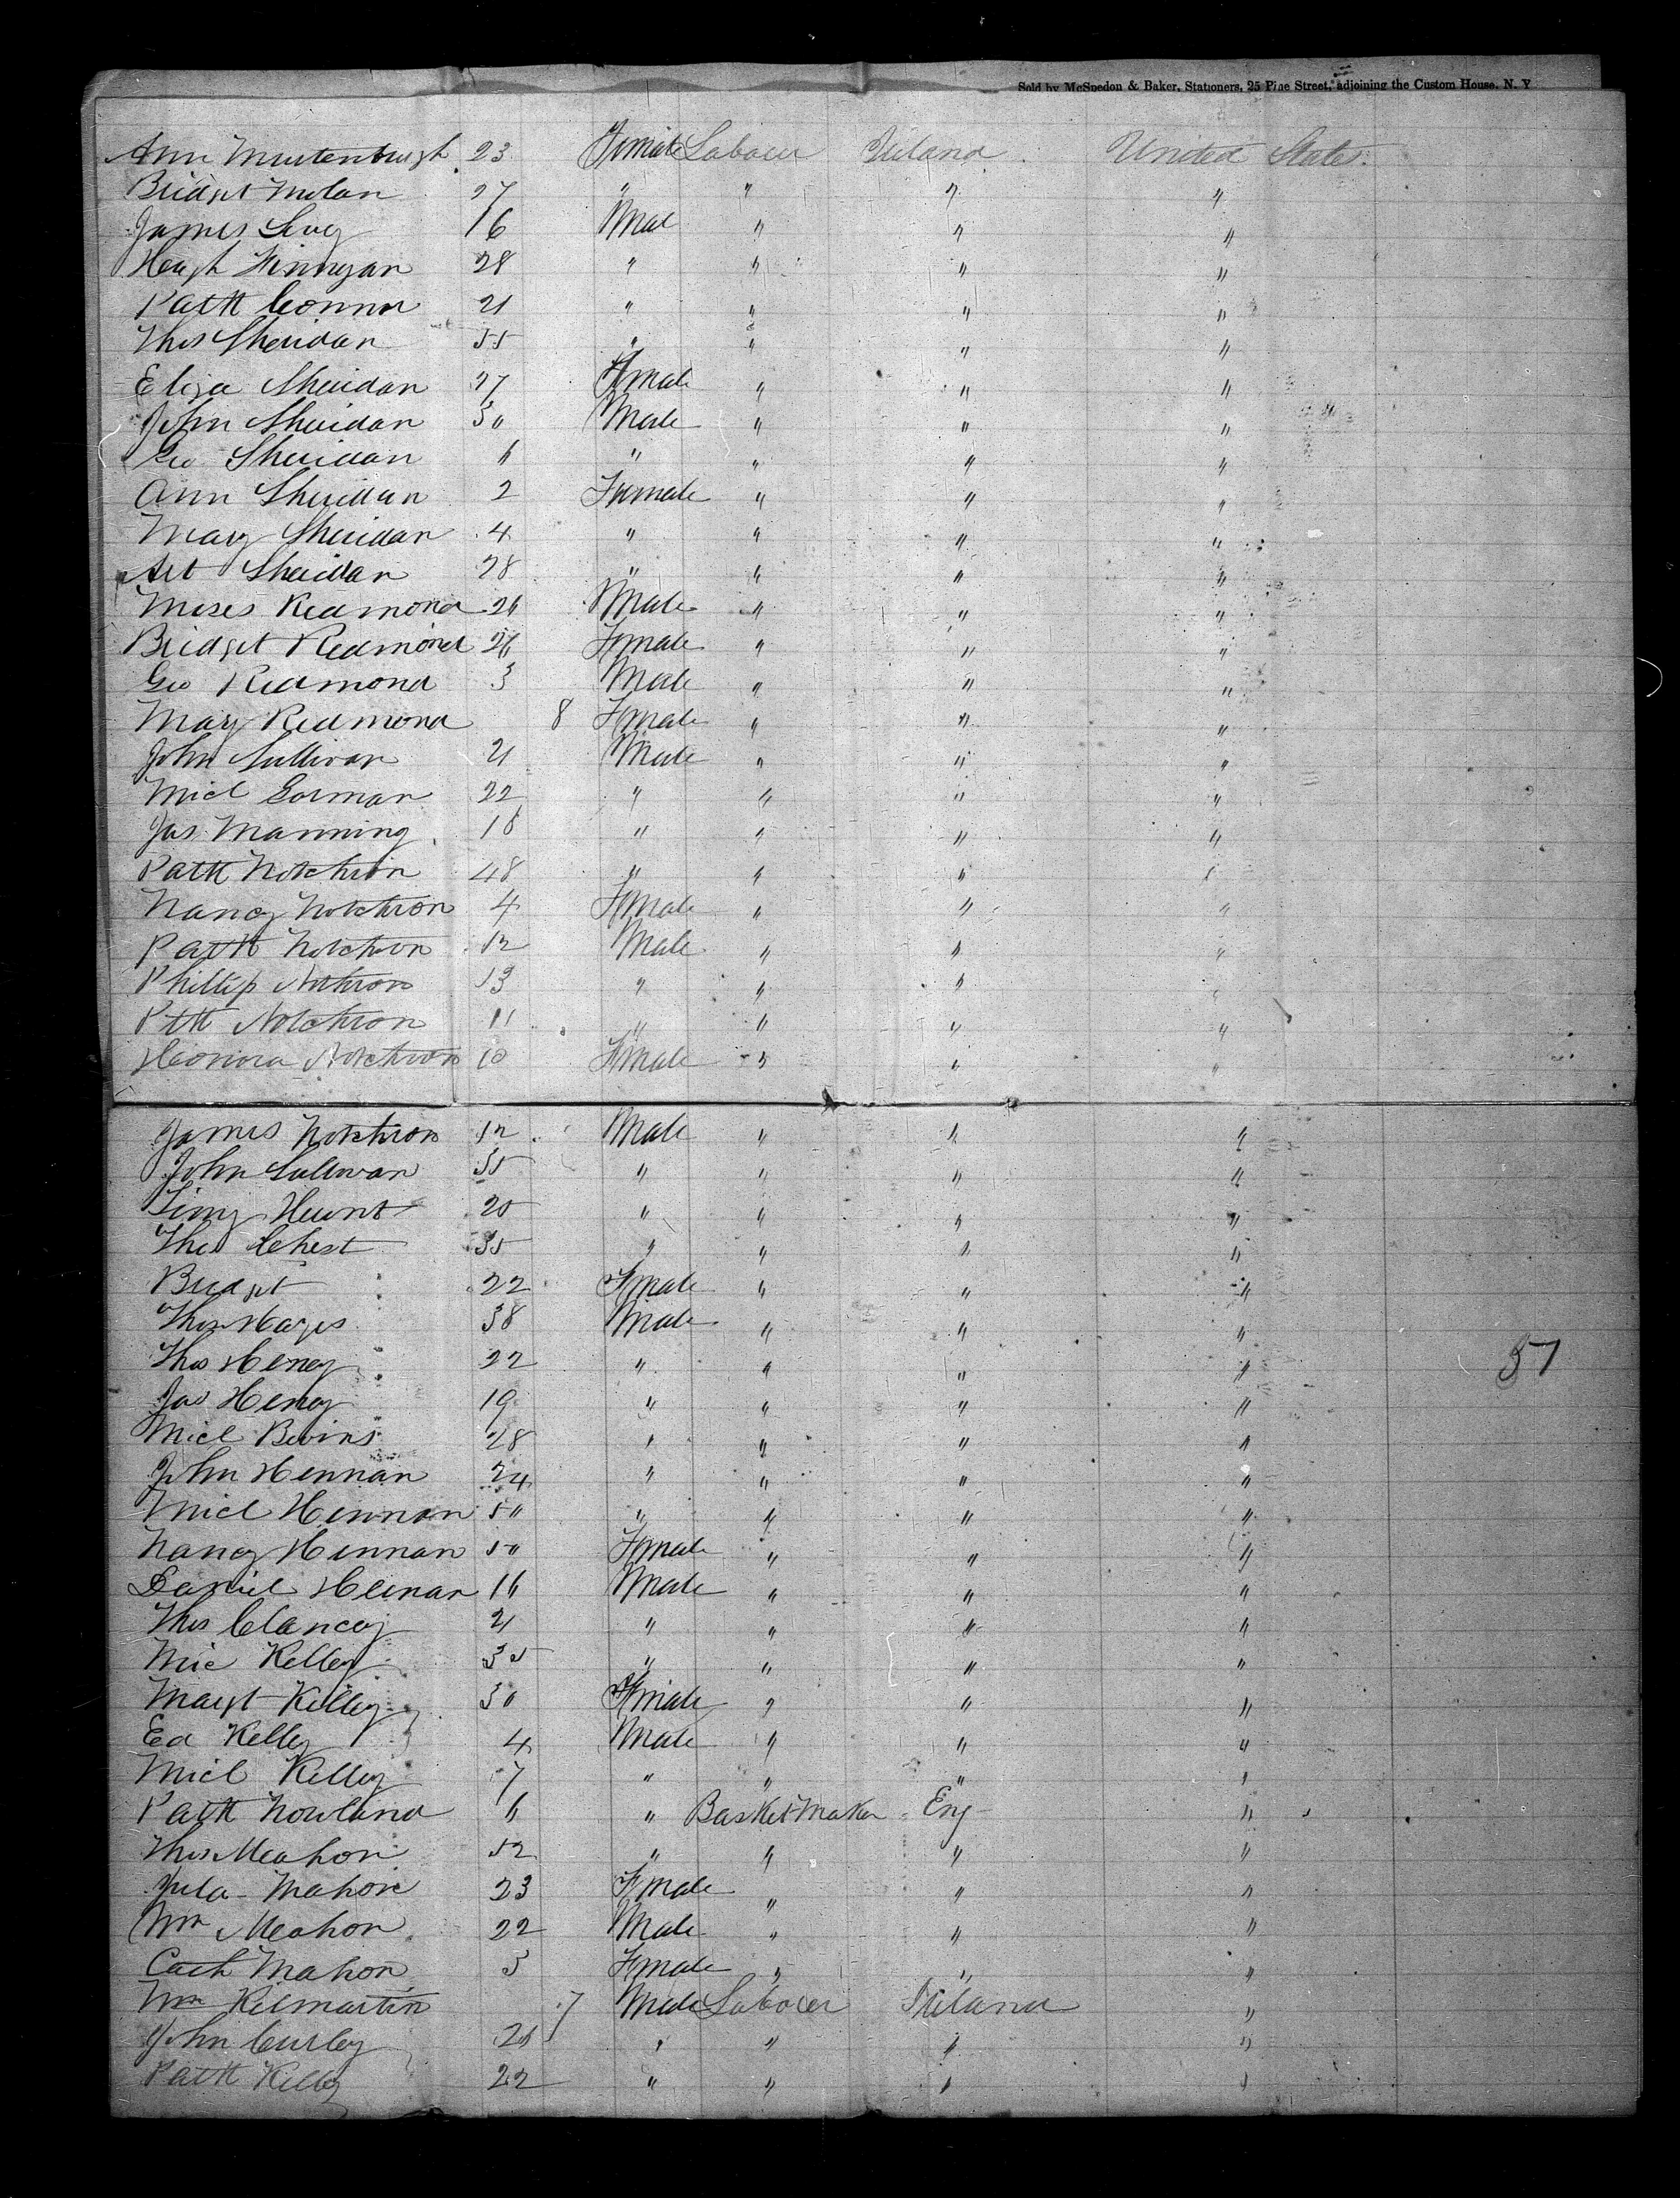 Sold by McSpedon & Baker, Stationers, 25 Pine Street, adjoining the Custom House, N. Y
Ann 23 Female Labour Ireland United States
Bridget Molan 27 " " " "
James 16 Male " " "
Hugh Finnegan 28 " " " "
Patk Connor 21 " " " "
Thos Sheridan 35 " " " "
Eliza Sheridan 27 Female " " "
John Sheridan 30 Male " " "
Geo Sheridan 6 " " " "
Ann Sheridan 2 Female " " "
Mary Sheridan 4 " " " "
Sheridan 28 " " " "
Moses Redmond 26 Male " " "
Bridget Redmond 26 Female " " "
Geo Redmond 3 Male " " "
Mary Redmond 8 Female " " "
John Sullivan 21 Male " " "
Micl Gorman 22 " " " "
Jas Manning 18 " " " "
Patk Notchron 48 " " " "
Nancy Notchron 4 Female " " "
Patk Notchron 12 Male " " "
Phillip 13 " " " "
Ptk Notchron 11 " " " "
Honora Notchron 10 Female " " "
James Notchron 12 Male " " "
John Sullivan 35 " " " "
Timy Hunt 20 " " " "
Thos Chest 35 " " " "
Bridget 22 Female " " "
Thos Hayes 38 Male " " "
Thos Heney 22 " " " "
57
Jas Heney 19 " " " "
Micl Bevins 28 " " " "
John Hennan 24 " " " "
Micl Hennan 50 " " " "
Nancy Hennan 50 Female " " "
Daniel Heenan 16 Male " " "
Thos Clancey 21 " " " "
Mic Kelley 35 " " " "
Margt Kelley 30 Female " " "
Ed Kelley 4 Male " " "
Micl Kelley 7 " " " "
Patk Nowland 6 " Basket Maker Eng "
Thos Meahon 52 " " " "
Mahon 23 Female " " "
Wm Meahon 22 Male " " "
Cath Mahon 3 Female " " "
Wm Kilmartin 7 Male Labour Ireland "
John Curley 26 " " " "
Patk Kelley 22 " " " "